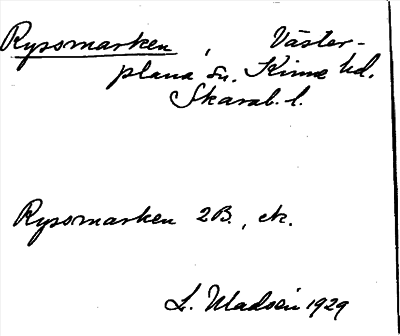 Rysomarken, Väster-
plana sn. Kinne hd.
Skarab. l.
Rysomarken 2B., ek.
L. Madsén 1929